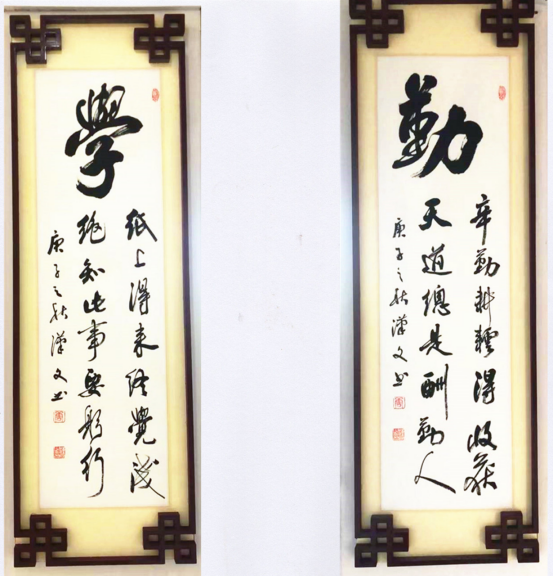 勤
辛勤耕耘得收获
天道總是酬勤人
庚子之秋漢文书
學
紙上得来终覺浅
绝知此事要躬行
庚子之秋漢文书